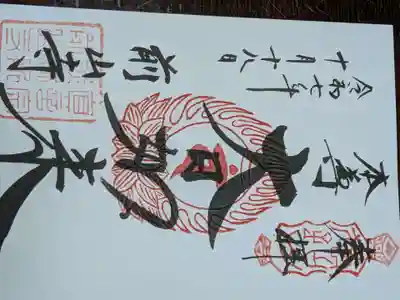 奉拝
本尊
大日如来
令和七年
十月十八日
前山寺